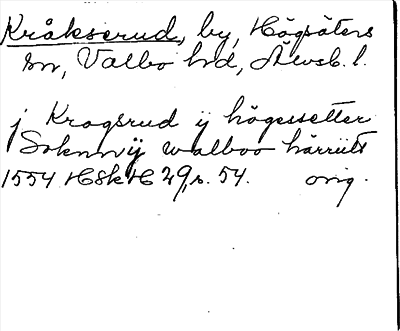 Kråkserud, by, Högsäters
sn, Valbo hd, Älvsb. l.
j Krogsrud ij högessetter
Soknn ij walboo härritt
1554 HSkH 29, s. 54. orig.